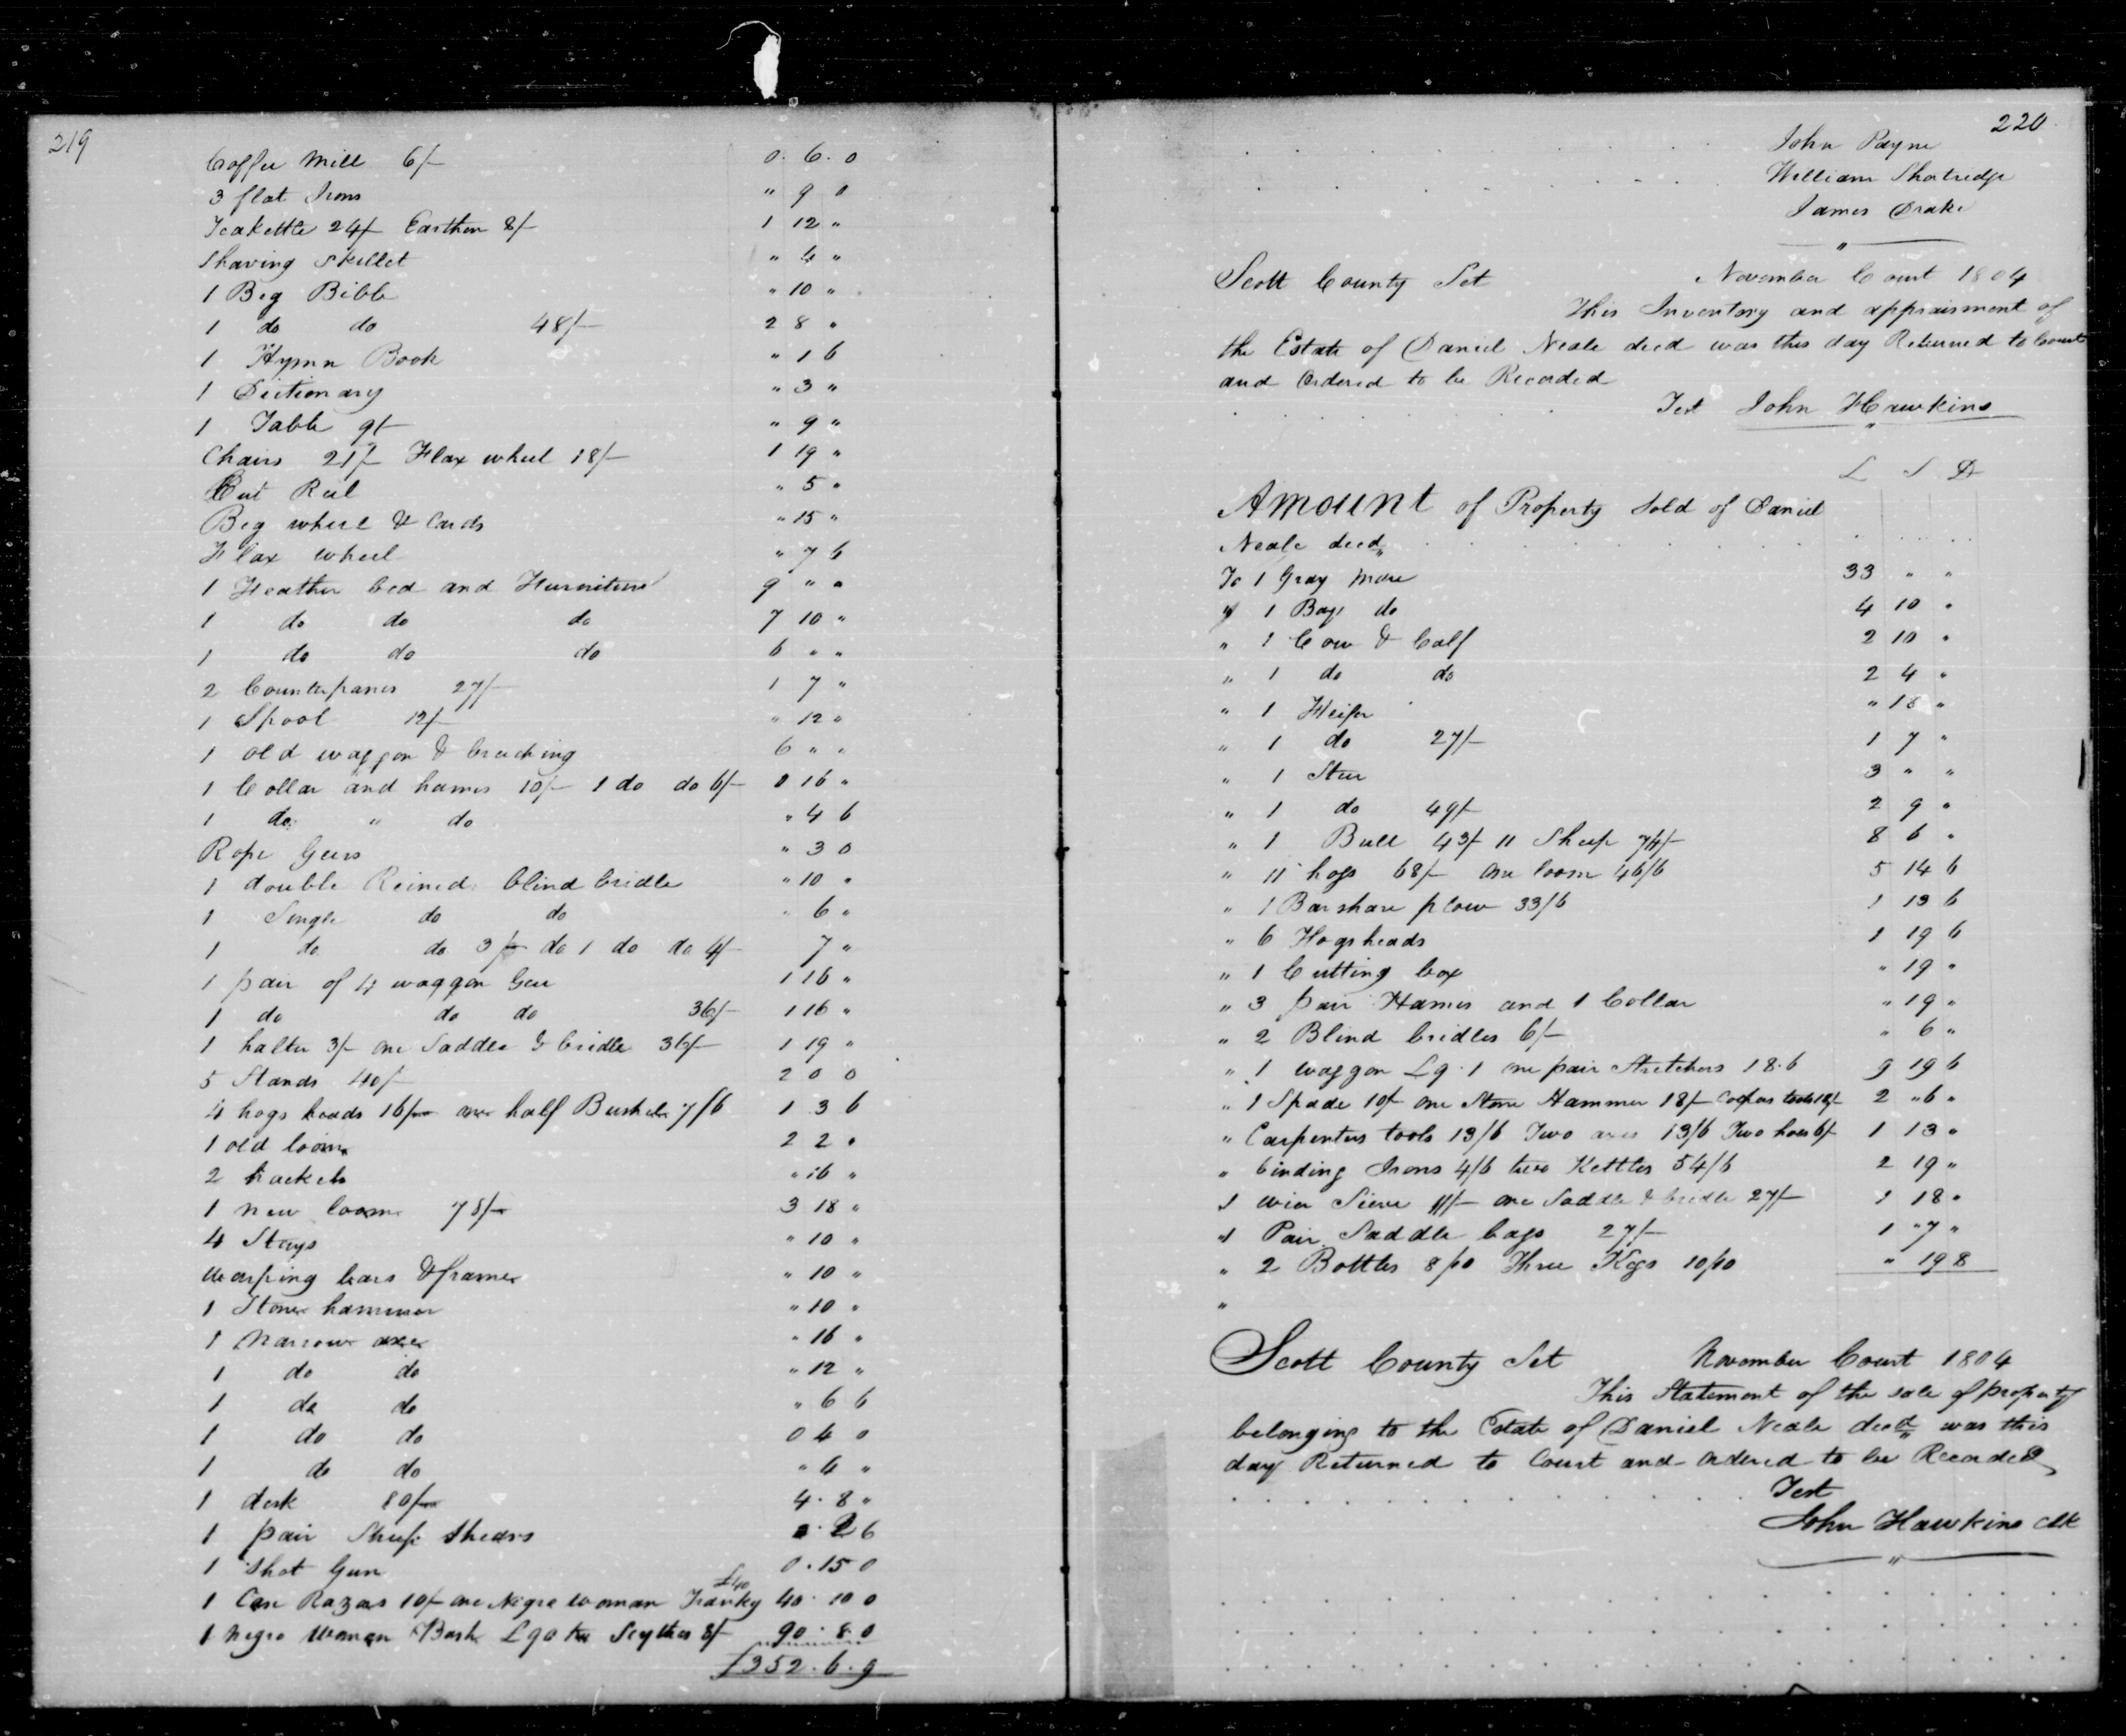 219
Coffee Mill 6/- 0. 6. 0
3 flat Irons " 9 0
Teakettle 24/- Earthen 8/- 1 12 "
Shaving Skillet " 4 "
1 Big Bible " 10 "
1 do do 48/- 2 8 "
1 Hymn Book " 1 6
1 Dictionary " 3 "
1 Table 9/- " 9 "
Chairs 21/- Flax wheel 18/- 1 19 "
Cut Reel " 5 "
Big wheel & Cards " 15 "
Flax wheel " 7 6
1 Feather bed and Furniture 9 " "
1 do do do 7 10 "
1 do do do 6 " "
2 Counterpanes 27/- 1 7 "
1 Spool 12/- " 12 "
1 old waggon & breeching 6 " "
1 Collar and hames 10/- 1 do do 6/- 0 16 "
1 do " do " 4 6
Rope Gears " 3 0
1 double Reined blind bridle " 10 "
1 Single do do " 6 "
1 do do 3/- do 1 do do 4/- 7 "
1 pair of 4 waggon Gear 1 16 "
1 do do do 36/- 1 16 "
1 halter 3/- one Saddle & bridle 36/- 1 19 "
5 Stands 40/- 2 0 0
4 hogs heads 16/- one half Bushel 7/6 1 3 6
1 old loom 2 2 "
2 hackels " 16 "
1 new loom 78/- 3 18 "
4 Stays " 10 "
Warping bars & frames " 10 "
1 Stone hammer " 10 "
1 Narrow axe " 16 "
1 do do " 12 "
1 do do " 6 6
1 do do 0 4 0
1 do do " 4 "
1 desk 80/- 4. 8 "
1 pair Sheep Shears 2 6
1 Shot Gun 0. 15 0
1 Case Razors 10/- one Negro woman Franky £40 40. 10 0
1 negro Woman Bash £90 two Scythes 8/- 90. 8. 0
£352. 6. 9
220
John Payne
William Shotridge
James Drake
Scott County Set November Court 1804
This Inventory and appraisment of
the Estate of Daniel Neale decd was this day Returned to Court
and Ordered to be Recorded
Test John Hawkins
L S D
Amount of Property Sold of Daniel
Neale decd
To 1 Gray Mare 33 " "
" 1 Bay do 4 10 "
" 1 Cow & Calf 2 10 "
" 1 do do 2 4 "
" 1 Heifer " 18 "
" 1 do 27/- 1 7 "
" 1 Steer 3 " "
" 1 do 49/- 2 9 "
" 1 Bull 43/- 11 Sheep 74/- 8 6 "
" 11 hogs 68/- one loom 46/6 5 14 6
" 1 Barshare plow 33/6 1 13 6
" 6 Hogsheads 1 19 6
" 1 Cutting box " 19 "
" 3 pair Hames and 1 Collar " 19 "
" 2 Blind bridles 6/- " 6 "
" 1 waggon £9. 1 one pair Stretchers 18.6 9 19 6
" 1 Spade 10/- one Stone Hammer 18/- Coopers tools 18/- 2 " 6 "
" Carpenters tools 13/6 Two axes 13/6 Two hoes 6/- 1 13 "
" binding Irons 4/6 two Kettles 54/6 2 19 "
1 wier Sieve 11/- one Saddle & bridle 27/- 1 18 "
"1 Pair Saddle bags 27/- 1 " 7 "
" 2 Bottles 8/10 Three Kegs 10/10 " 19 8
"
Scott County Set November Court 1804
This Statement of the sale of property
belonging to the Estate of Daniel Neale decd was this
day Returned to Court and ordered to be Recorded
Test
John Hawkins Clk